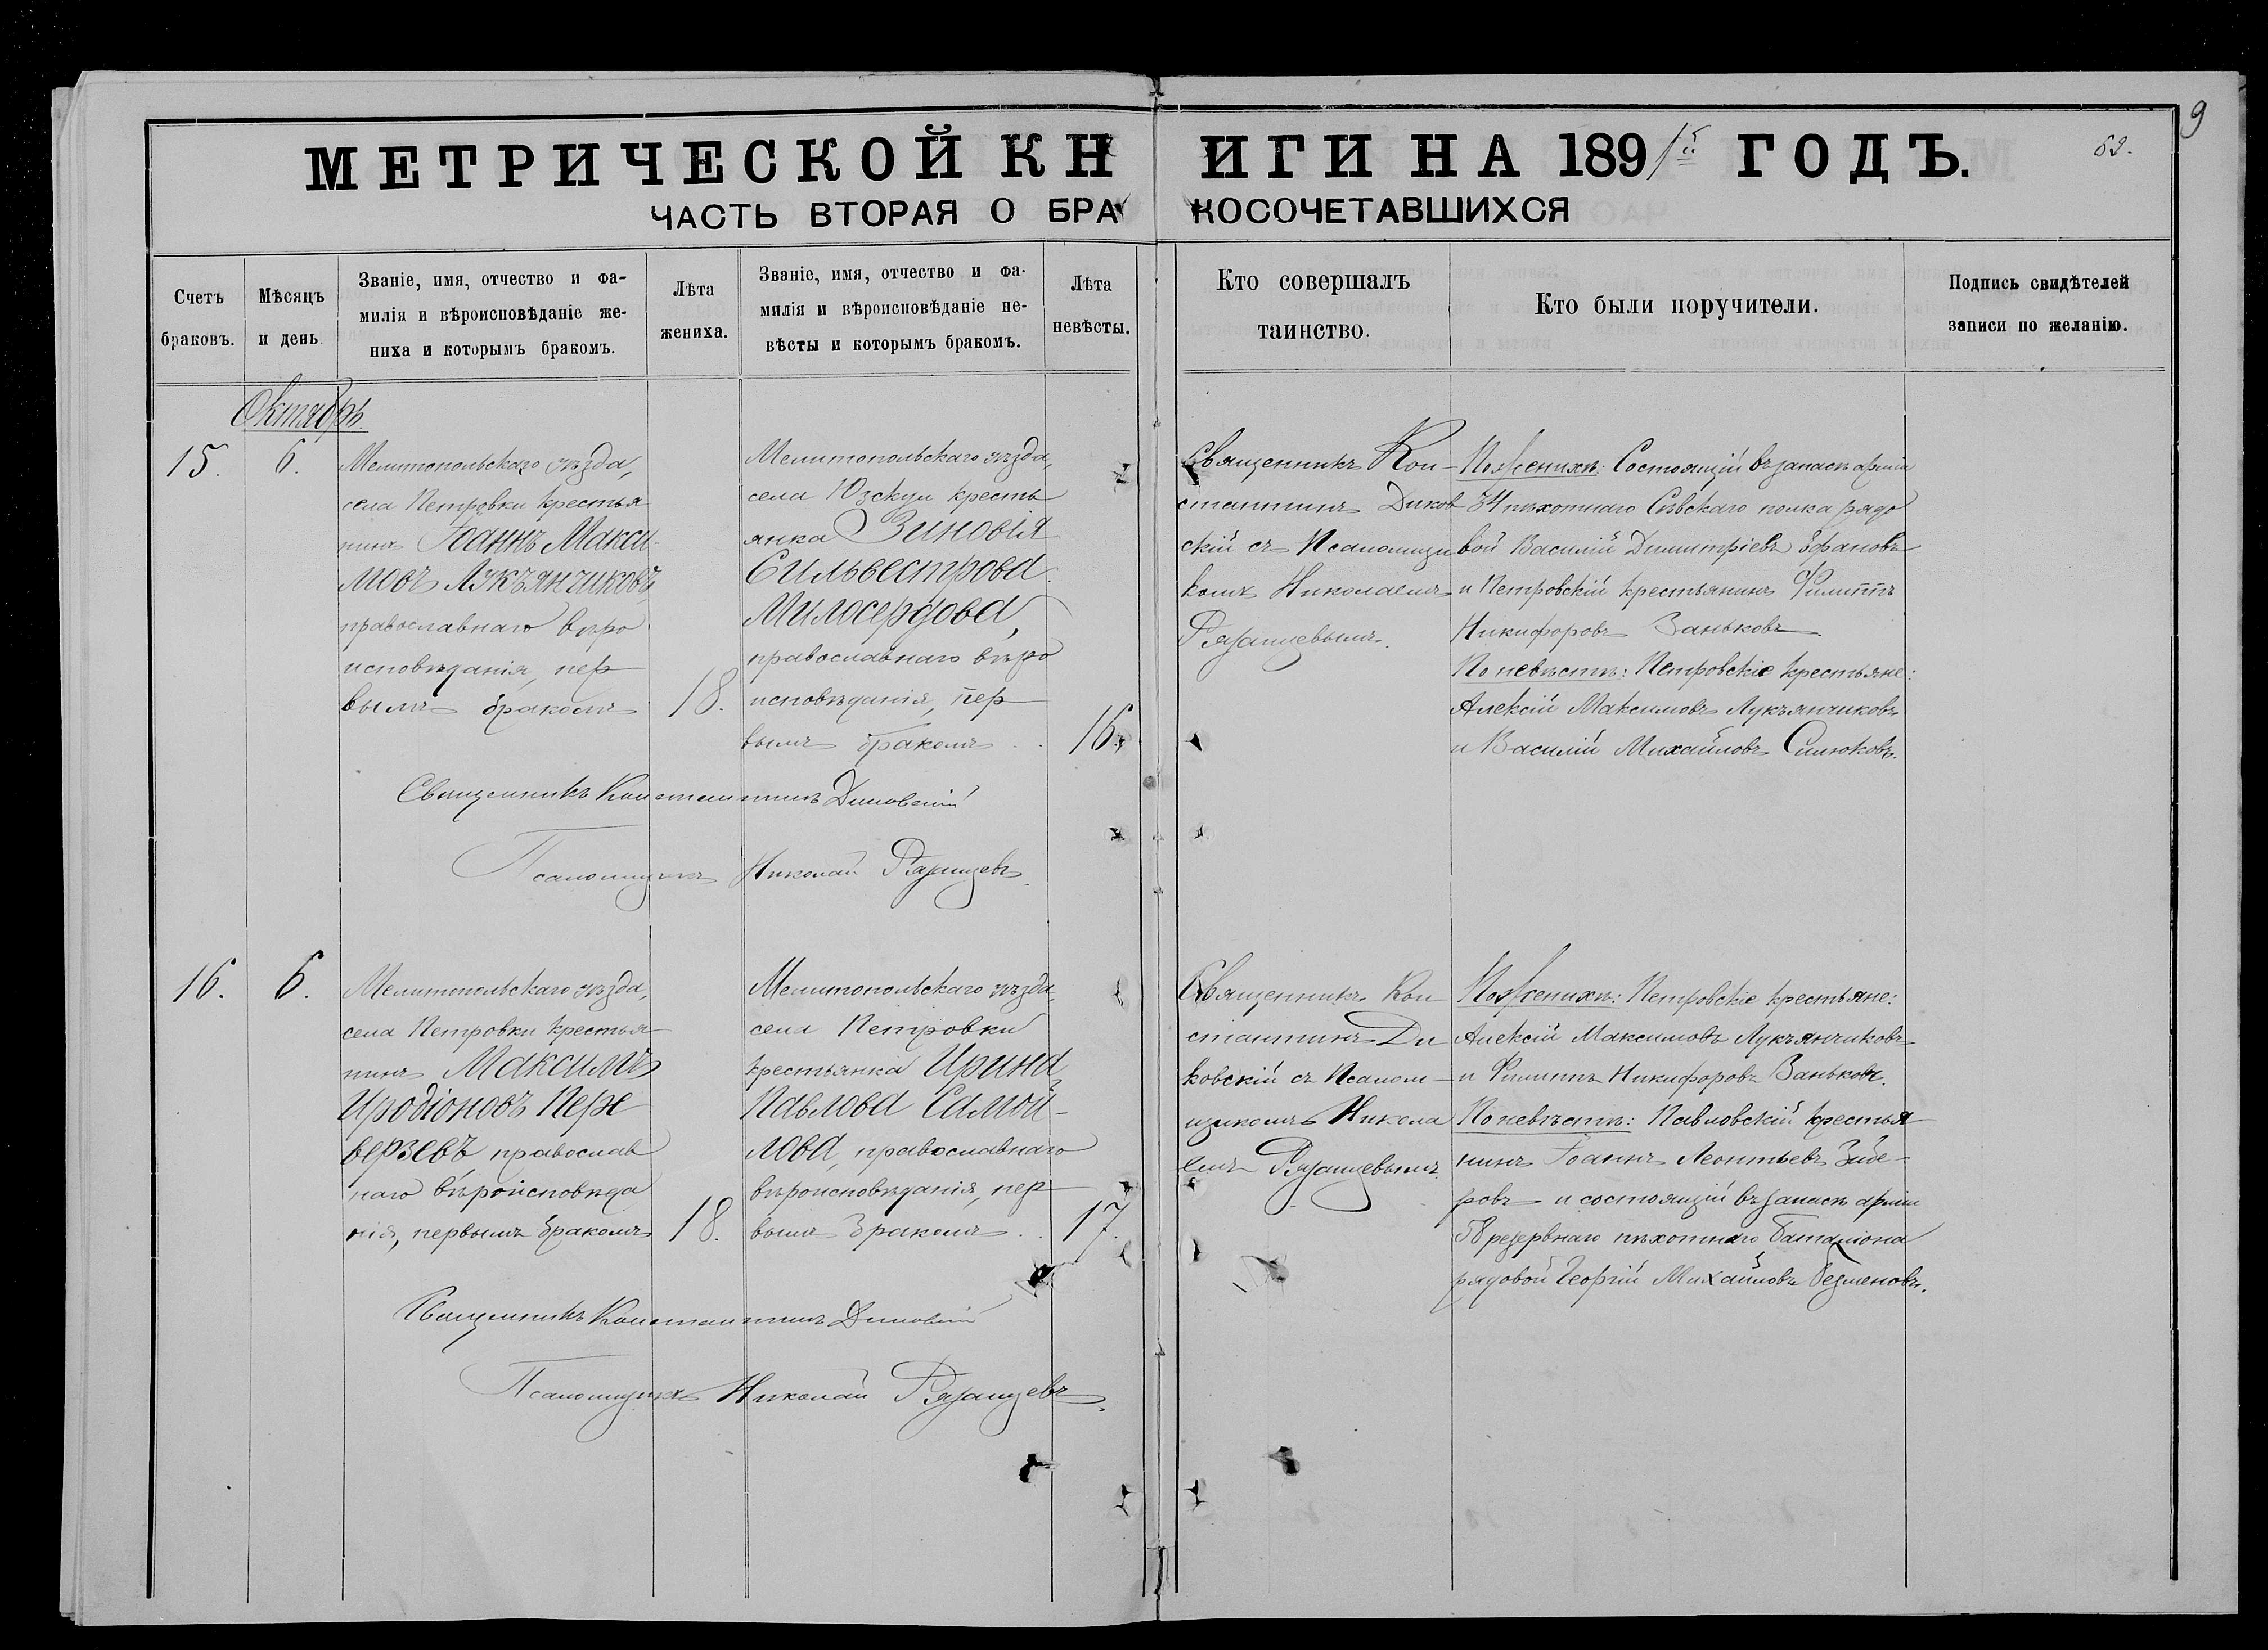 9
МЕТРИЧЕСКОЙ КНИГИ НА 1891й ГОДЪ.
ЧАСТЬ ВТОРАЯ О БРАКОСОЧЕТАВШИХСЯ
Счетъ
браковъ.
Мѣсяцъ
и день
Званіе, имя, отчество и фа-
милія и вѣроисповѣданіе же-
ниха и которымъ бракомъ.
Лѣта
жениха.
Званіе, имя, отчество и фа-
милія и вѣроисповѣданіе не-
вѣсты и которымъ бракомъ.
Лѣта
невѣсты.
Кто совершалъ
таинство.
Кто были поручители.
Подпись свидѣтелей
записи по желанію.
Октябрь.
15.
6.
Мелитопольскаго уѣзда,
села Петровки крестья
нинъ Іоаннъ Макси-
мовъ Лукъянчиковъ,
православнаго вѣро
исповѣданія, пер
вымъ бракомъ
18.
Мелитопольскаго уѣзда,
села Юзкуи кресть
янка Зиновія
Сильвестрова
Милосердова,
православнаго вѣро
исповѣданія, пер
вымъ бракомъ . .
16.
Священникъ Кон-
стантинъ Диков
скій съ Псаломщи
комъ Николаемъ
Рязанцевымъ.
По женихѣ: Состоящій въ запасѣ арміи
34 пѣхотнаго Сѣвскаго полка рядо
вой Василій Димитріевъ
и Петровскій крестьянинъ Филиппъ
Никифоровъ Заньковъ
По невѣстѣ: Петровскіе крестьяне:
Алексій Максимовъ Лукъянчиковъ
и Василій Михайловъ
Священникъ Константинъ Диковскій
Псаломщикъ Николай Рязанцевъ
16.
6.
Мелитопольскаго уѣзда,
села Петровки крестья
нинъ Максимъ
Иродіоновъ Пере
верзевъ православ
наго вѣроисповѣда
нія, первымъ бракомъ
18.
Мелитопольскаго уѣзда,
села Петровки
крестьянка Ирина
Павлова Самой-
лова, православнаго
вѣроисповѣданія, пер
вымъ бракомъ . .
17.
Священникъ Кон
стантинъ Ди
ковскій съ Псалом-
щикомъ Никола
емъ Рязанцевымъ.
По женихѣ: Петровскіе крестьяне:
Алексій Максимовъ Лукъянчиковъ
и Филиппъ Никифоровъ Заньковъ.
По невѣстѣ: Павловскій крестья
нинъ Іоаннъ Леонтьевъ
и состоящій въ запасѣ арміи
58 резервнаго пѣхотнаго баталіона
рядовой Георгій Михайловъ Безменовъ.
Священникъ Константинъ Диковскій
Псаломщикъ Николай Рязанцевъ.